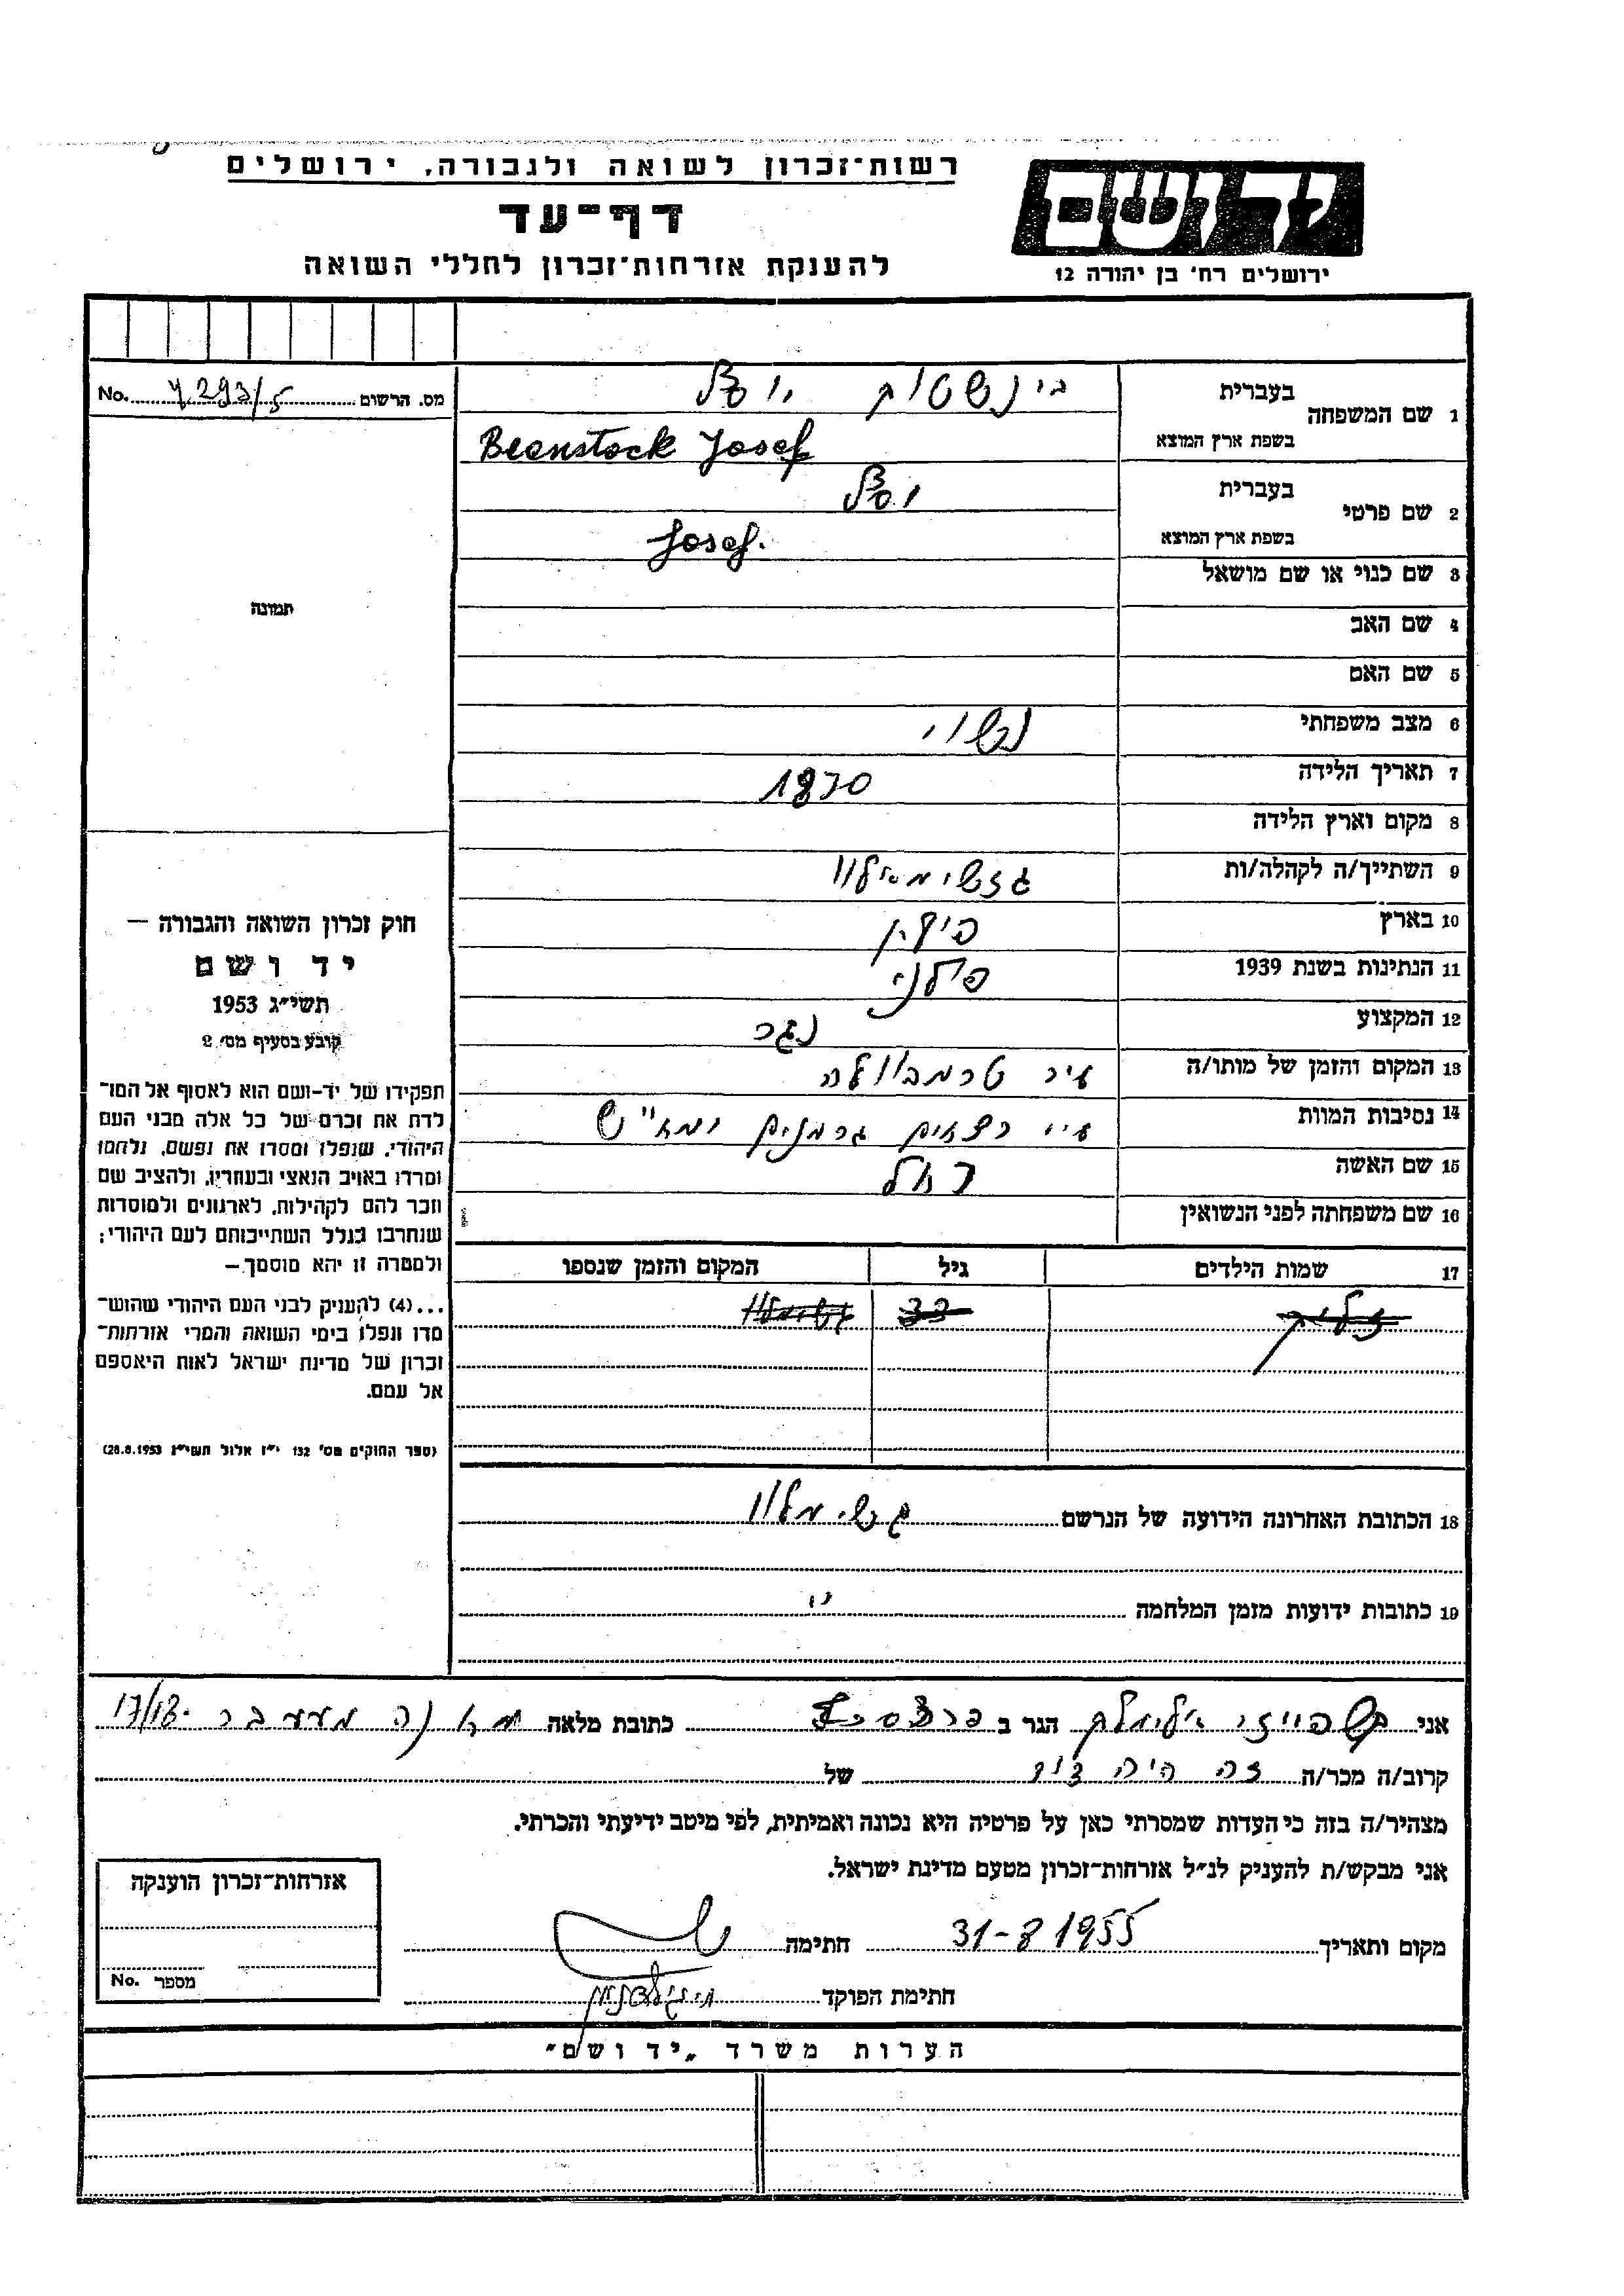 רשות־זכרון לשואה ולגבורה, ירושלים
דף־עד
להענקת אזרחות־זכרון לחללי השואה
ידושם
ירושלים רח׳ בן יהודה 12
מס. הרשום No.
תמונה
חוק זכרון השואה והגבורה —
יד ושם
תשי״ג 1953
קובע בסעיף מס׳ 2
תפקידו של יד-ושם הוא לאסוף אל המו־
לדת את זכרם של כל אלה מבני העם
היהודי, שנפלו ומסרו את נפשם, נלחמו
ומרדו באויב הנאצי ובעוזריו, ולהציב שם
וזכר להם לקהילות, לארגונים ולמוסדות
שנחרבו בגלל השתייכותם לעם היהודי;
ולמטרה זו יהא מוסמך—
...(4) להעניק לבני העם היהודי שהוש־
מדו ונפלו בימי השואה והמרי אזרחות־
זכרון של מדינת ישראל לאות היאספם
אל עמם.
(ספר החוקים מס׳ 132 י״ז אלול תשי״ג 28.8.1953)
1 שם המשפחה בעברית בינשטוק יוסף
בשפת ארץ המוצא Beanstock Josef
2 שם פרטי בעברית יוסף
בשפת ארץ המוצא Josef.
3 שם כנוי או שם מושאל
4 שם האב
5 שם האם
6 מצב משפחתי נשוי
7 תאריך הלידה 1870
8 מקום וארץ הלידה
9 השתייך/ה לקהלה/ות
10 בארץ פולין
11 הנתינות בשנת 1939 פולני
12 המקצוע נגר
13 המקום והזמן של מותו/ה עיר טרמבוולה
14 נסיבות המוות ע״י רוצחים גרמנים ומא״ש
15 שם האשה רחל
16 שם משפחתה לפני הנשואין
17 שמות הילדים גיל המקום והזמן שנספו
18 הכתובת האחרונה הידועה של הנרשם
19 כתובות ידועות מזמן המלחמה
אני אלימלך הגר ב כתובת מלאה מעבר 17/18
קרוב/ה מכר/ה זה היה דוד של
מצהיר/ה בזה כי העדות שמסרתי כאן על פרטיה היא נכונה ואמיתית, לפי מיטב ידיעתי והכרתי.
אני מבקש/ת להעניק לנ״ל אזרחות־זכרון מטעם מדינת ישראל.
מקום ותאריך 31-8 1955 חתימה
חתימת הפוקד
אזרחות־זכרון הוענקה
מספר No.
הערות משרד „יד ושם״